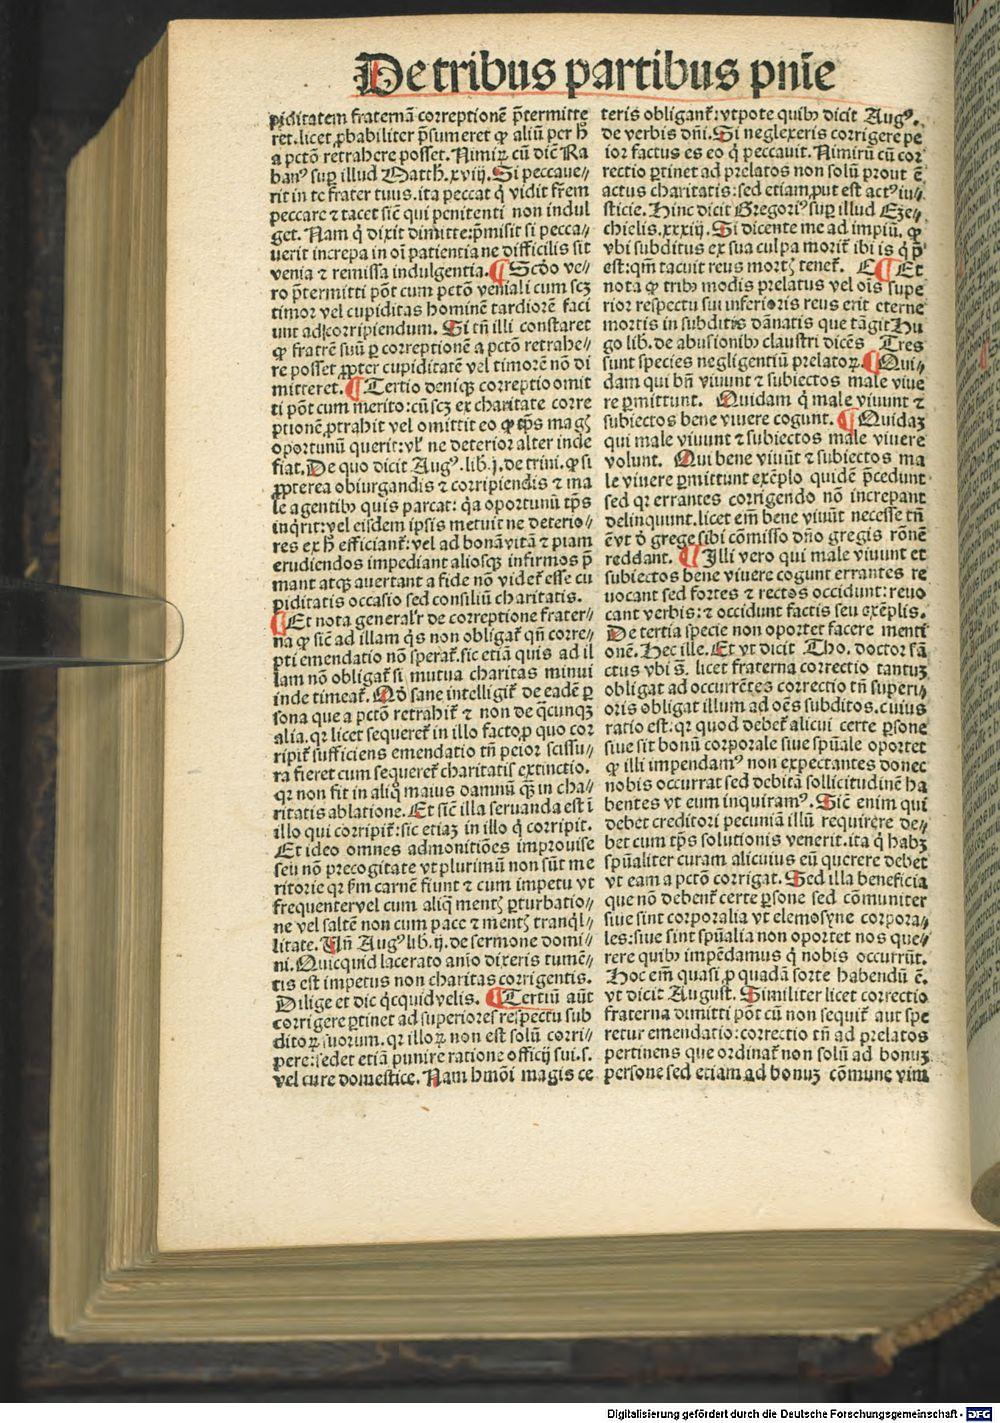 De tribus partibus pnīe
piditatem fraternā correptionē p̄termitte
ret. licet ꝓbabiliter p̄sumeret ꝙ aliū per h̄
a pctō retrahere posset. Nimiꝝ cū dic̄ Ra
banꝰ suꝑ illud Matth̄. xviij. Si peccaue⸗
rit in te frater tuus. ita peccat q̇ vidit fr̄em
peccare ⁊ tacet sic̄ qui penitenti non indul
get. Nam q̇ dixit dimitte: p̄misit si pecca⸗
uerit increpa in oī patientia ne difficilis sit
venia ⁊ remissa indulgentia. ¶ Scd̄o ve⸗
ro p̄termitti pōt cum pctō veniali cum scꝫ
timor vel cupiditas hominē tardiorē faci
unt ad corripiendum. Si tn̄ illi constaret
ꝙ fratrē suū ꝑ correptionē a pctō retrahe⸗
re posset ꝓpter cupiditatē vel timorē nō di
mitteret. ¶ Tertio deniqꝫ correptio omit
ti pōt cum merito: cū scꝫ ex charitate corre
ptionē ꝓtrahit vel omittit eo ꝙ tp̄s magꝭ
oportunū querit: vl̓ ne deterior alter inde
fiat. De quo dicit Augꝰ. lib. j. de trini. ꝙ si
ꝓpterea obiurgandis ⁊ corripiendis ⁊ ma
le agentibꝰ quis parcat: q̇a oportunū tp̄s
inq̇rit: vel eisdem ipsis metuit ne deterio⸗
res ex h̄ efficiant᷑: vel ad bonā vitā ⁊ piam
erudiendos impediant aliosqꝫ infirmos p̄
mant atqꝫ auertant a fide nō videt᷑ esse cu
piditatis occasio sed consiliū charitatis.
¶ Et nota general̓r de correptione frater⸗
na ꝙ sic̄ ad illam q̇s non obligat᷑ qn̄ corre⸗
pti emendatio nō sperat᷑. sic etiā quis ad il
lam nō obligat᷑ si mutua charitas minui
inde timeat᷑. Qḋ sane intelligit᷑ de eadē ꝑ
sona que a pctō retrahit᷑ ⁊ non de q̇cunqꝫ
alia. qꝛ licet sequeret᷑ in illo facto, ꝓ quo cor
ripit᷑ sufficiens emendatio tn̄ peior scissu⸗
ra fieret cum sequeret᷑ charitatis extinctio.
qꝛ non fit in aliq̇ maius damnū qꝫ̄ in cha⸗
ritatis ablatione. Et sic̄ illa seruanda est ī
illo qui corripit᷑: sic etiaꝫ in illo q̇ corripit.
Et ideo omnes admonitiōes improuise
seu nō precogitate vt plurimū non sūt me
ritorie qꝛ ẜm carnē fiunt ⁊ cum impetu vt
frequenter vel cum aliq̇ mentꝭ ꝑturbatio⸗
ne vel saltē non cum pace ⁊ mentꝭ tranq̇l⸗
litate. Vn̄ Augꝰ lib. ij. de sermone domi⸗
ni. Quicquid lacerato aīo dixeris tumē⸗
tis est impetus non charitas corrigentis.
Dilige et dic q̇cquid velis. ¶ Tertiū aūt
corrigere ꝑtinet ad superiores respectu sub
ditoꝝ suorum. qꝛ illoꝝ non est solū corri⸗
pere: sed et etiā punire ratione officij sui. s.
vel cure domestice. Nam hm̄ōi magis ce
teris obligant᷑: vtpote quibꝰ dicit Augꝰ.
de verbis dn̄i. Si neglexeris corrigere pe
ior factus es eo q̇ peccauit. Nimirū cū cor
rectio ꝑtinet ad prelatos non solū prout ē
actus charitatis: sed etiam, put est actꝰ iu⸗
sticie. Hinc dicit Gregoriꝰ suꝑ illud Eze⸗
chielis. xxxiij. Si dicente me ad impiū. ꝙ
vbi subditus ex sua culpa morit᷑ ibi is q̇ p̄
est: qm̄ tacuit reus mortꝭ tenet᷑. E ¶ Et
nota ꝙ tribꝰ modis prelatus vel oīs supe
rior respectu sui inferioris reus erit eterne
mortis in subditis dānatis que tāgit Hu
go lib. de abusionibꝰ claustri dicēs Tres
sunt species negligentiū prelatoꝝ. ¶ Qui⸗
dam qui bn̄ viuunt ⁊ subiectos male viue
re ꝑmittunt. Quidam q̇ male viuunt ⁊
subiectos bene viuere cogunt. ¶ Quidaꝫ
qui male viuunt ⁊ subiectos male viuere
volunt. Qui bene viuūt ⁊ subiectos ma
le viuere ꝑmittunt exēplo quidē p̄cedunt
sed qꝛ errantes corrigendo nō increpant
delinquunt. licet em̄ bene viuūt necesse tn̄
ē vt ḋ grege sibi cōmisso dn̄o gregis rōnē
reddant. ¶ Illi vero qui male viuunt et
subiectos bene viuere cogunt errantes re
uocant sed fortes ⁊ rectos occidunt: reuo
cant verbis: ⁊ occidunt factis seu exēplis.
De tertia specie non oportet facere menti
onē. Hec ille. Et vt dicit Tho. doctor sā
ctus vbi s̄. licet fraterna correctio tantuꝫ
obligat ad occurrētes correctio tn̄ superi⸗
oris obligat illum ad oēs subditos. cuius
ratio est: qꝛ quod debet᷑ alicui certe ꝑsone
siue sit bonū corporale siue spūale oportet
ꝙ illi impendamꝰ non expectantes donec
nobis occurrat sed debitā sollicitudinē ha
bentes vt eum inquiramꝰ. Sic̄ enim qui
debet creditori pecuniā illū requirere de⸗
bet cum tp̄s solutionis venerit. ita q̇ habꝫ
spūaliter curam alicuius eū querere debet
vt eam a pctō corrigat. Sed illa beneficia
que nō debent᷑ certe ꝑsone sed cōmuniter
siue sint corporalia vt elemosyne corpora⸗
les: siue sint spūalia non oportet nos que⸗
rere quibꝰ impēdamus q̇ nobis occurrūt.
Hoc em̄ quasi ꝓ quadā sorte habendū ē.
vt dicit August. Similiter licet correctio
fraterna dimitti pōt cū non sequit᷑ aut spe
retur emendatio: correctio tn̄ ad prelatos
pertinens que ordinat᷑ non solū ad bonuꝫ
persone sed etiam ad bonuꝫ cōmune vim
Digitalisierung gefördert durch die Deutsche Forschungsgemeinschaft - DFG